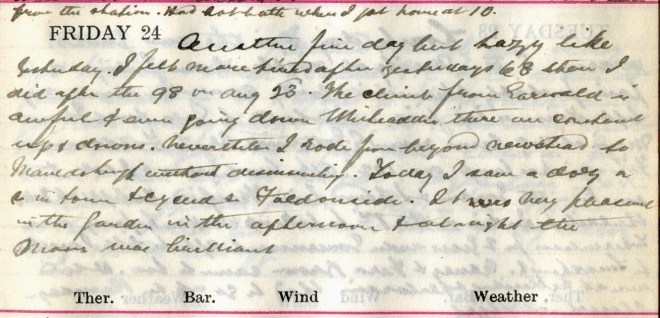 from the station. Had hot bath when I got home at 10.
FRIDAY 24
Another fine day but hazy like
yesterday. I felt more tired after yesterdays 68 than I
did after the 98 on Aug 23. The climb from Earwald is
awful & even going down there are constant
ups & downs. Nevertheless I rode from beyond Newstead to
without dismounting. Today I saw a
in town & cycled to Faldonside. It was very pleasant
in the garden in the afternoon & at night the
Moon was brilliant
Ther. Bar. Wind Weather